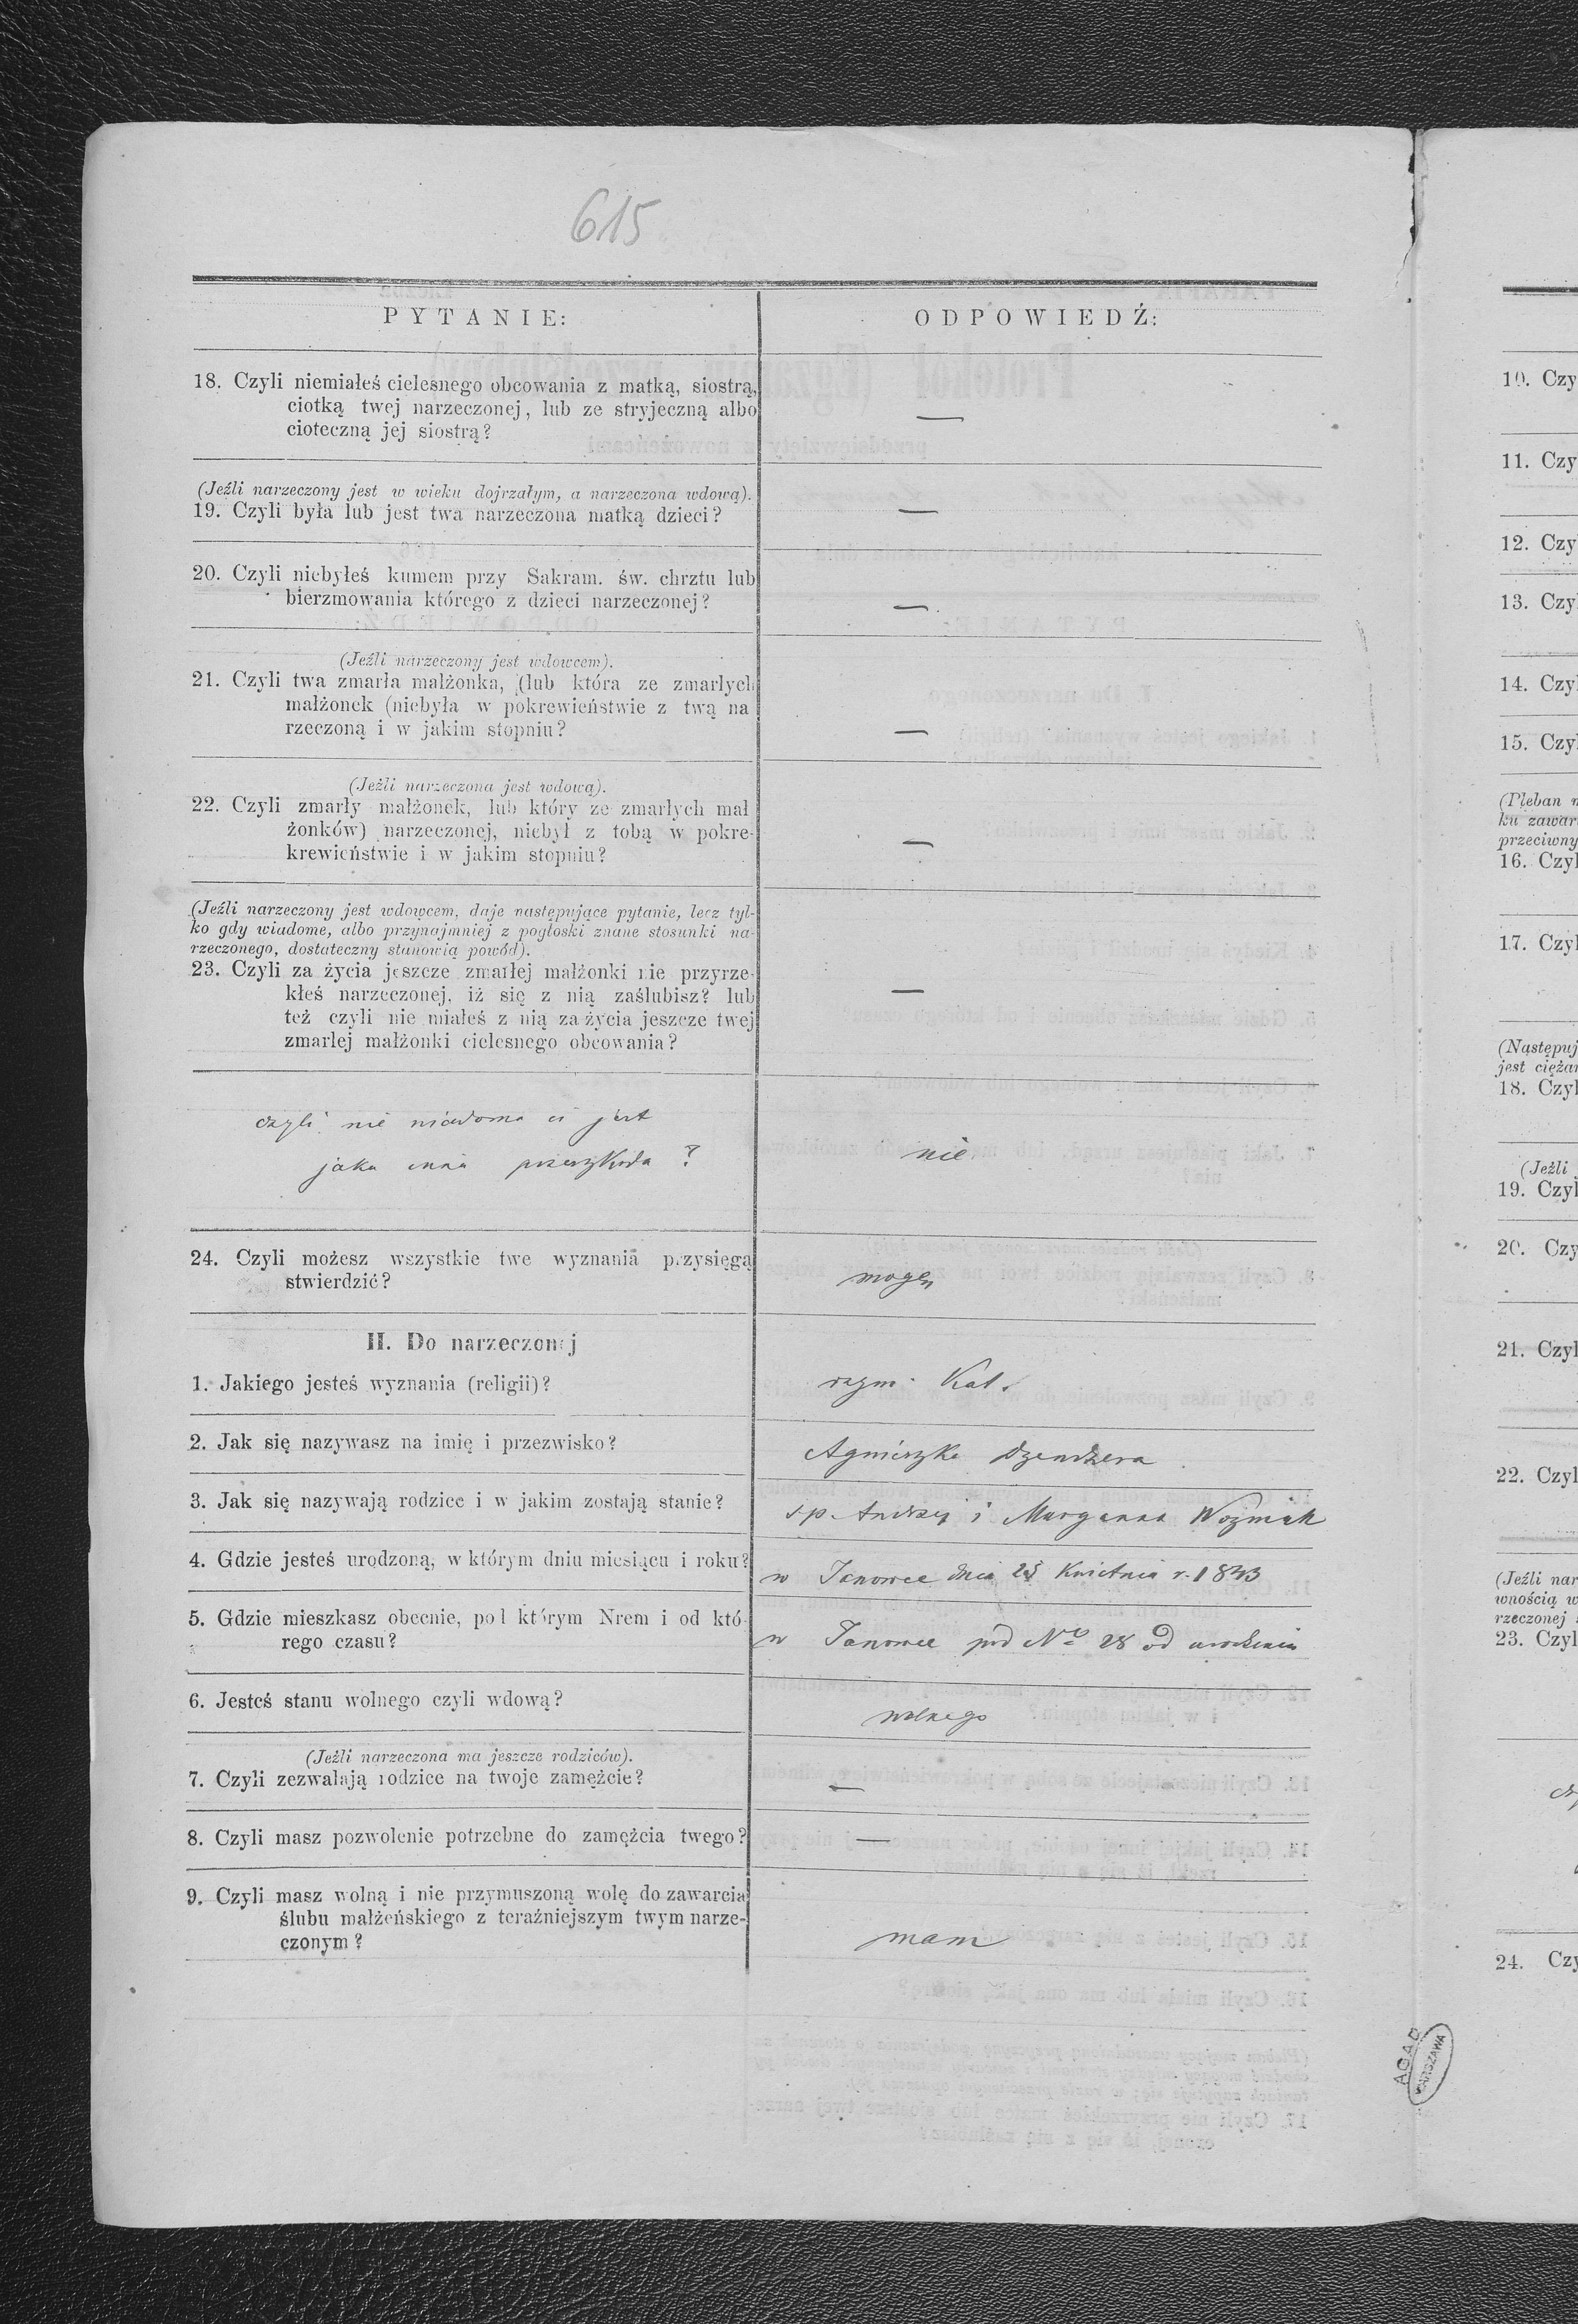 615
PYTANIE:
ODPOWIEDŹ:
18. Czyli niemiałeś cielesnego obcowania z matką, siostrą,
ciotką twej narzeczonej, lub ze stryjeczną albo
cioteczną jej siostrą?
—
(Jeźli narzeczony jest w wieku dojrzałym, a narzeczona wdową).
19. Czyli była lub jest twa narzeczona matką dzieci?
—
20. Czyli niebyłeś kumem przy Sakram. św. chrztu lub
bierzmowania którego z dzieci narzeczonej?
—
(Jeźli narzeczony jest wdowcem).
21. Czyli twa zmarła małżonka, (lub która ze zmarłych
małżonek (niebyła w pokrewieństwie z twą na
rzeczoną i w jakim stopniu?
—
(Jeźli narzeczona jest wdową).
22. Czyli zmarły małżonek, lub który ze zmarłych mał
żonków) narzeczonej, niebył z tobą w pokre-
krewieństwie i w jakim stopniu?
—
(Jeźli narzeczony jest wdowcem, daje następujące pytanie, lecz tyl-
ko gdy wiadome, albo przynajmniej z pogłoski znane stosunki na-
rzeczonego, dostateczny stanowią powód).
23. Czyli za życia jeszcze zmarłej małżonki nie przyrze-
kłeś narzeczonej, iż się z nią zaślubisz? lub
też czyli nie miałeś z nią za życia jeszcze twej
zmarłej małżonki cielesnego obcowania?
—
czyli nie wiadoma ci jest
jaka inna przeszkoda ?
nie
24. Czyli możesz wszystkie twe wyznania przysięgą
stwierdzić?
mogę
II. Do narzeczonej
1. Jakiego jesteś wyznania (religii)?
rzym. Kat.
2. Jak się nazywasz na imię i przezwisko?
Agnieszka Dzendzera
3. Jak się nazywają rodzice i w jakim zostają stanie?
sp. Andrzej i Maryanna Wozniak
4. Gdzie jesteś urodzoną, w którym dniu miesiącu i roku?
w Janowce dnia Kwietnia r. 1843
5. Gdzie mieszkasz obecnie, pod którym Nrem i od któ-
rego czasu?
w Janowce pod No 28 od urodzenia
6. Jesteś stanu wolnego czyli wdową?
wolnego
(Jeźli narzeczona ma jeszcze rodziców).
7. Czyli zezwalają rodzice na twoje zamężcie?
—
8. Czyli masz pozwolenie potrzebne do zamężcia twego?
—
9. Czyli masz wolną i nie przymuszoną wolę do zawarcia
ślubu małżeńskiego z teraźniejszym twym narze-
czonym?
mam
10. Czy
11. Czy
12. Czy
13. Czy
14. Czy
15. Czy
(Pleban
ku zawar
przeciwny
16. Czyl
17. Czyl
(Następuj
jest ciężar
18. Czyl
(Jeźli
19. Czyl
20. Czy
21. Czyl
22. Czyl
(Jeźli nar
wnością w
rzeczonej
23. Czyl
24. Czy
AGAD
WARSZAWA